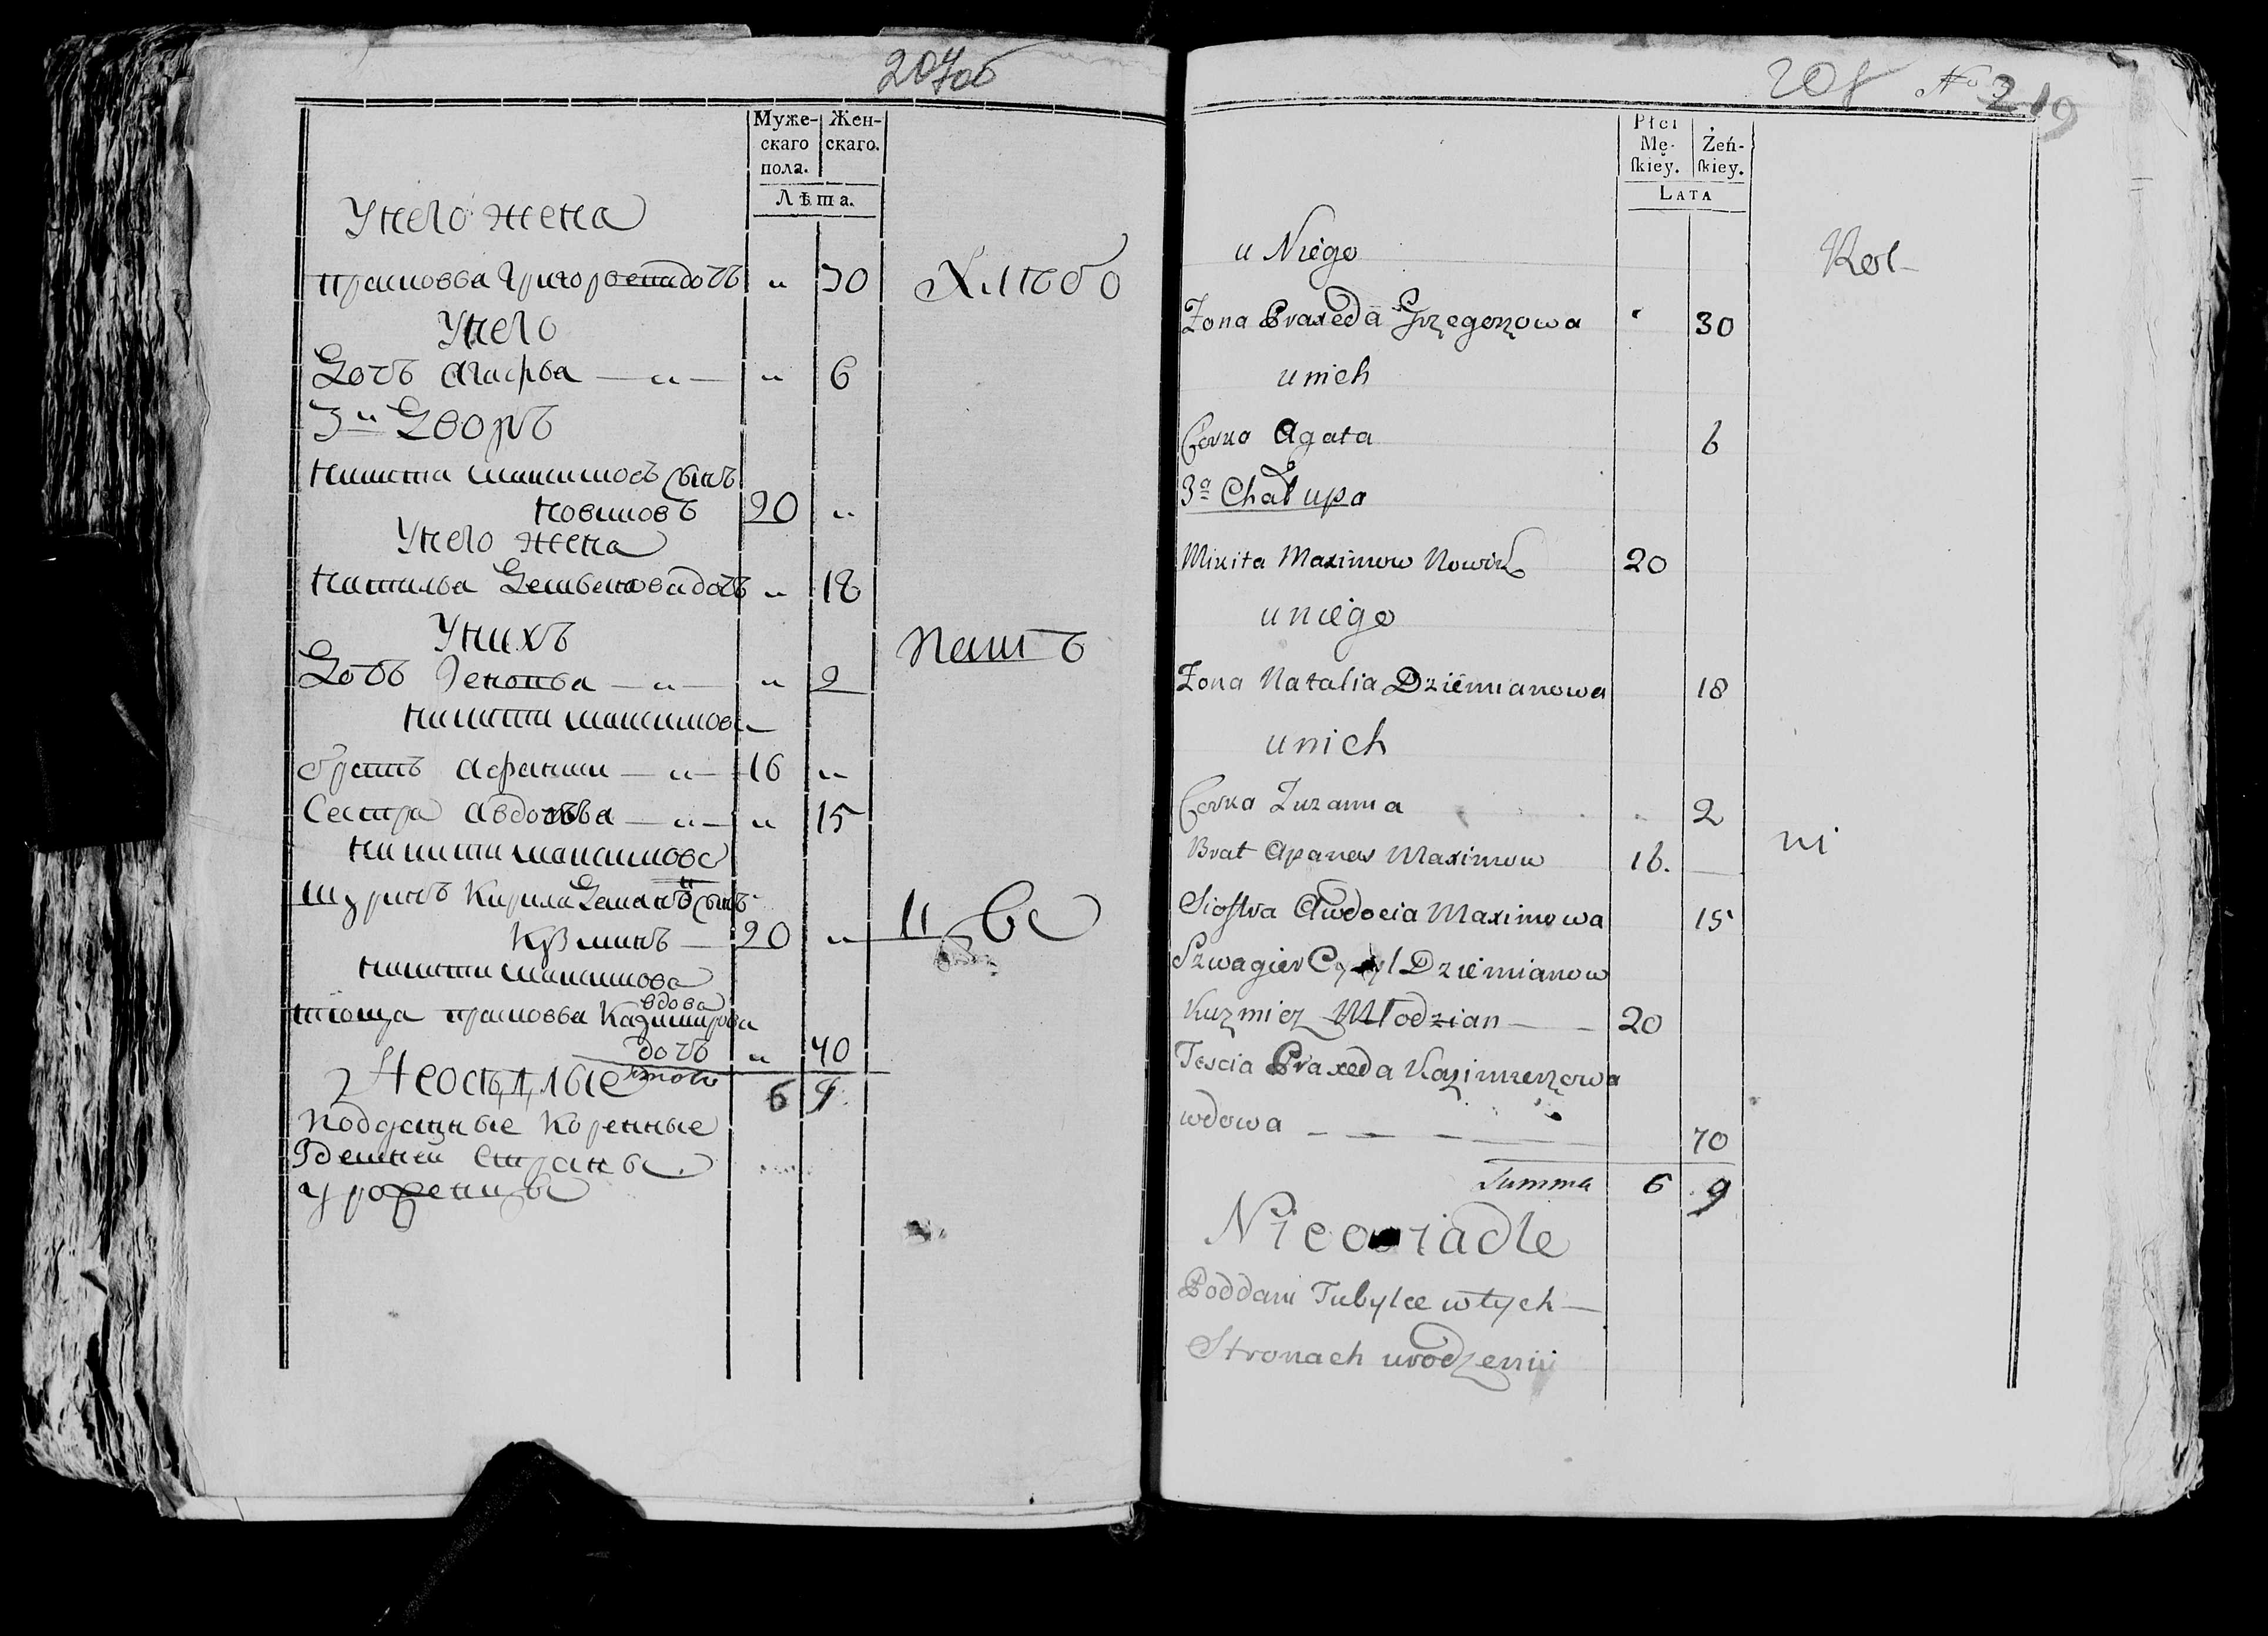 207об
Муже- Жен-
скаго скаго.
пола.
Лѣта.
Унего жена
прасковья Григорьевадочь " 30 Хлѣбо
Унего
Дочь агафья — " — " 6
3й Дворъ
никита максимовъ сынъ
новиковъ 20 "
Унего жена
наталья Демьяновадочь " 18
Унихъ пашъ
Дочь — " — " 2
никиты максимова
братъ афанаси — " — 16 "
Сестра авдотья — " — " 15
никиты максимова
шуринъ Кирила Демьяновъ сынъ
Кузминъ — 20 "
никиты максимова
вдова
тіоща прасковья Казимирова
дочь " 40
Неосѣдлые итого 6 9
Подданые Коренные
Здешней Страны
уроженцы
208 No 219
Płci
Mę- Żeń-
ſkiey. ſkiey.
LATA
u Niego Rol-
Zona Praxeda Grzegorzowa 30
unich
Corka Agata 6
3a Chałupa
Mikita Maximow Nowik 20
uniego
Zona Natalia Dziemianowa 18
unich
Corka Zuzanna 2
Brat Apanas Maximow 16. ni
Siostra Awdocia Maximowa 15
Szwagier Dziemianow
Kuzmicz Młodzian — — 20
Tescia Praxeda Kazimierzowa
wdowa — — — 70
Summa 6 9
Nieosiadle
Poddani Tubylce wtych —
Stronach urodzenii